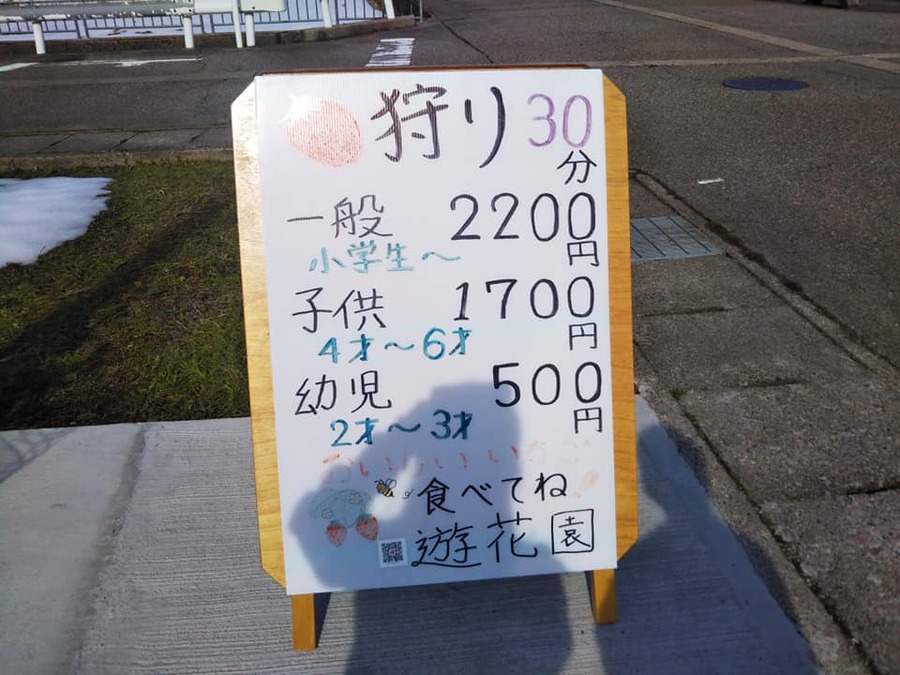 狩り 30分
一般 2200円
小学生〜
子供 1700円
4才〜6才
幼児 500円
2才〜3才
おいしいいちご
食べてね!
遊花園